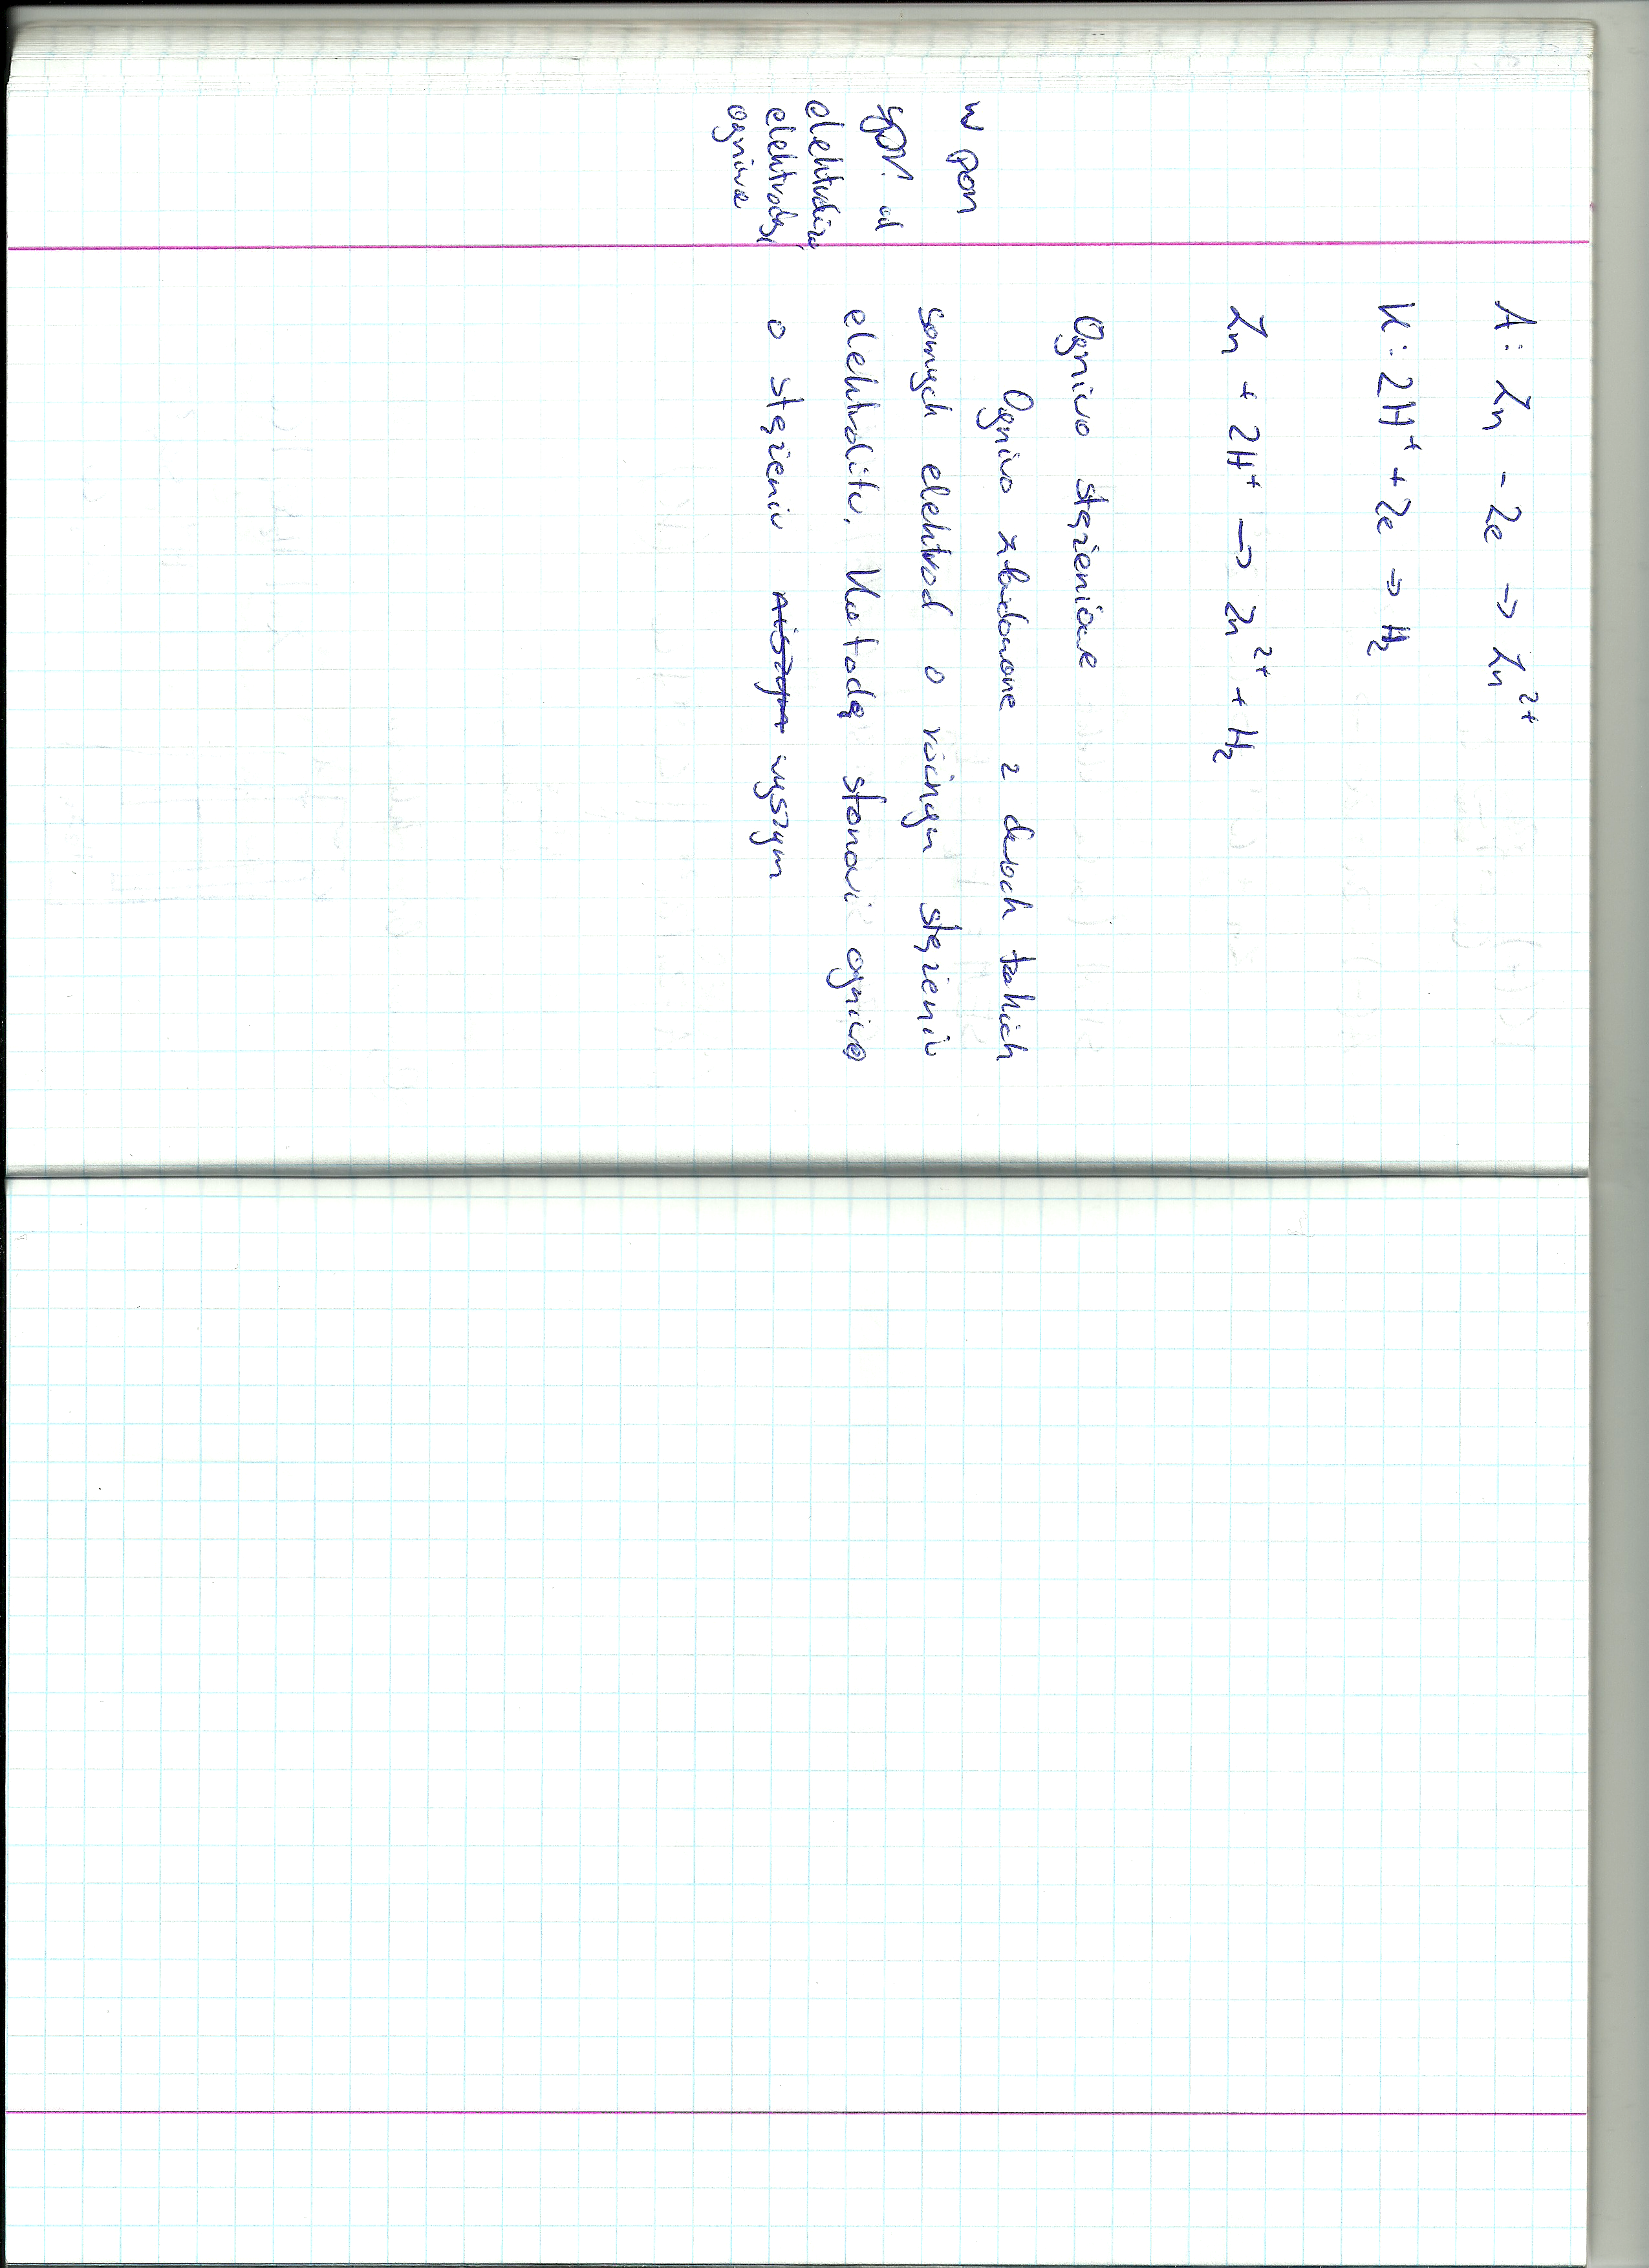 A: Zn - 2e → Zn²⁺
K: 2H⁺ + 2e → H₂
Zn + 2H⁺ → Zn²⁺ + H₂
Ogniwo stężeniowe
Ogniwo zbudowane z dwóch takich
samych elektrod o różnym stężeniu
elektrolitu. Katodę stanowi ogniwo
o stężeniu niższym wyższym
w pon
spr! od
elektrolizy
elektrody,
ogniwa